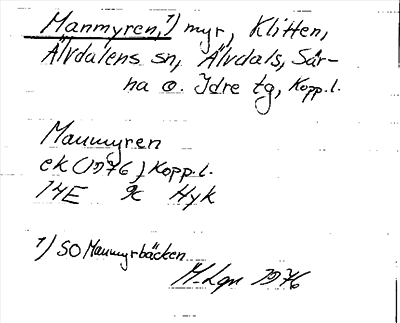 Manmyren,¹) myr, Klitten,
Älvdalens sn, Älvdals, Sär-
na o. Idre tg, Kopp.l.
Manmyren
ek (1976) Kopp.l.
14E 9c Hyk
¹) SO Manmyrbäcken
M-Lgn 1976